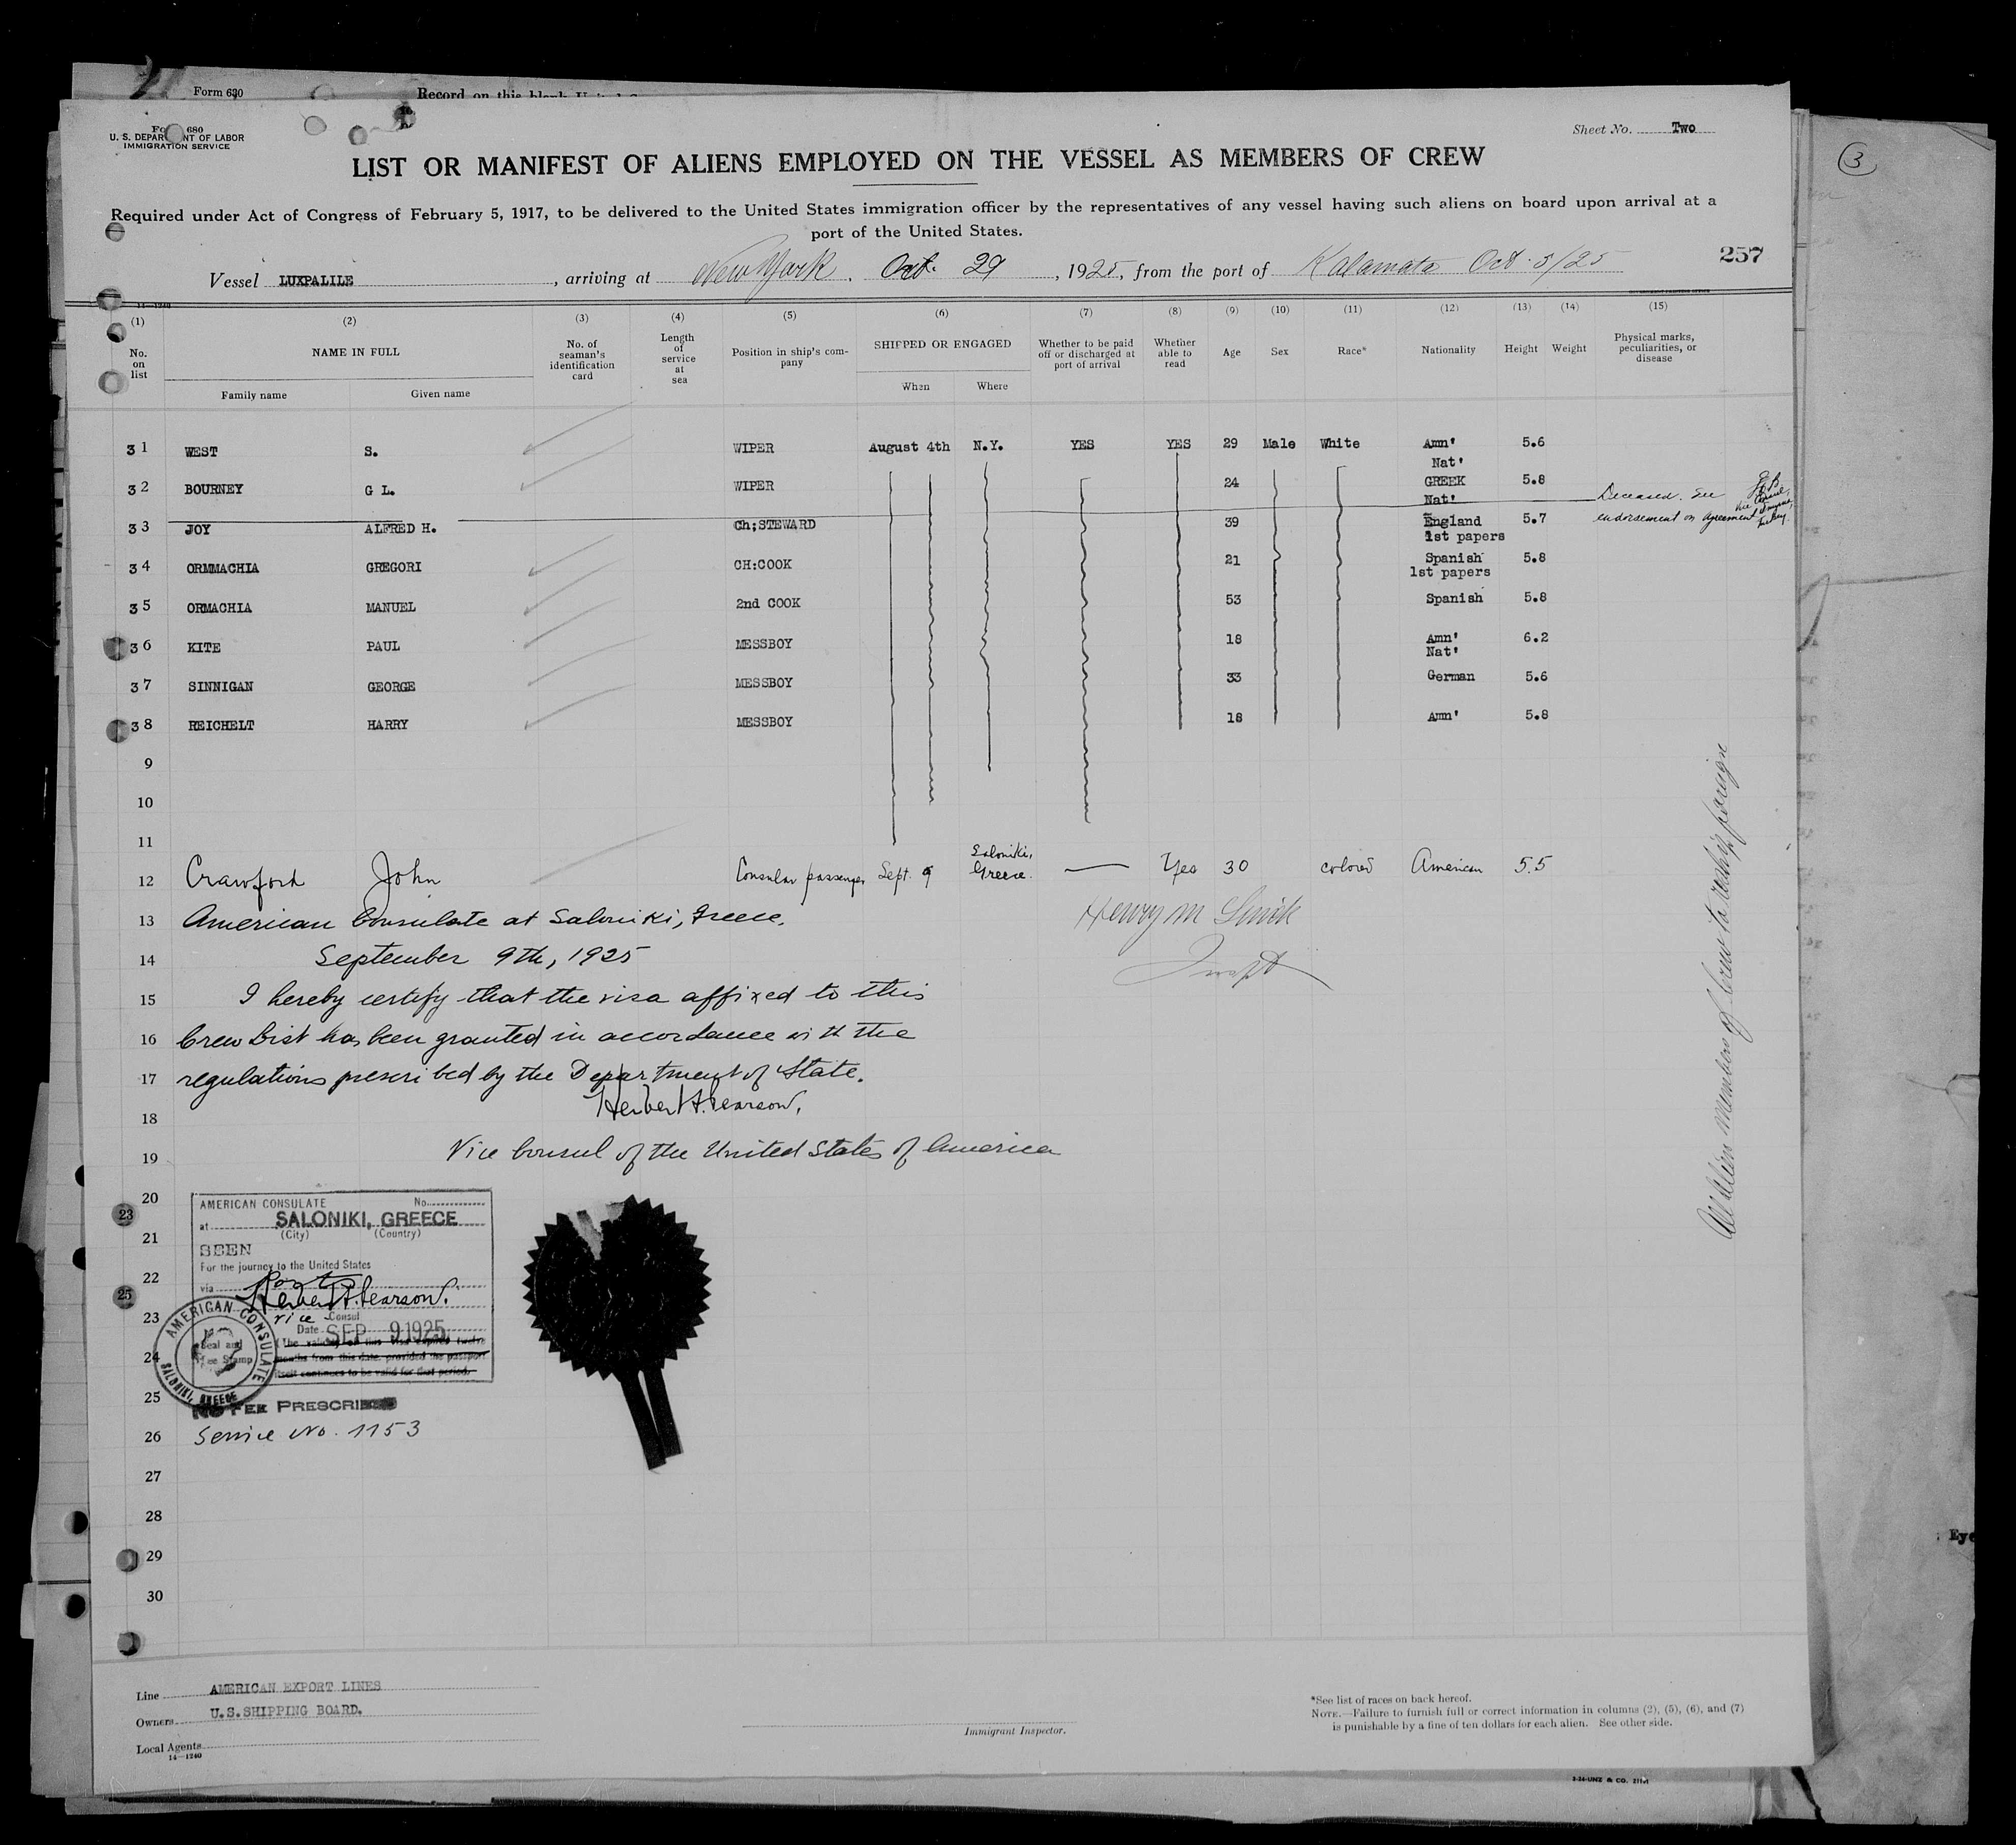 Form 630
Record on this blank
Form 680
U. S. DEPARTMENT OF LABOR
IMMIGRATION SERVICE
Sheet No. Two
3
LIST OR MANIFEST OF ALIENS EMPLOYED ON THE VESSEL AS MEMBERS OF CREW
Required under Act of Congress of February 5, 1917, to be delivered to the United States immigration officer by the representatives of any vessel having such aliens on board upon arrival at a
port of the United States.
257
Vessel LUXPALILE, arriving at New York. Oct. 29, 1925, from the port of Kalamata Oct. 5/25
14—1240
(1) (2) (3) (4) (5) (6) (7) (8) (9) (10) (11) (12) (13) (14) (15)
No. on list NAME IN FULL No. of seaman's identification card Length of service at sea Position in ship's company SHIPPED OR ENGAGED Whether to be paid off or discharged at port of arrival Whether able to read Age Sex Race* Nationality Height Weight Physical marks, peculiarities, or disease
Family name Given name When Where
31 WEST S. WIPER August 4th N.Y. YES YES 29 Male White Amn' Nat' 5.6
32 BOURNEY G L. WIPER 24 GREEK Nat' 5.8
33 JOY ALFRED H. Ch;STEWARD 39 England 1st papers 5.7 Deceased. See endorsement on Agreement
34 ORMMACHIA GREGORI CH:COOK 21 Spanish 1st papers 5.8
35 ORMACHIA MANUEL 2nd COOK 53 Spanish 5.8
36 KITE PAUL MESSBOY 18 Amn' Nat' 6.2
37 SINNIGAN GEORGE MESSBOY 33 German 5.6
38 REICHELT HARRY MESSBOY 18 Amn' 5.8
9
10
11
12 Crawford John Consular passenger Sept. 9 Saloniki, Greece. — Yes 30 colored American 5.5
13 American Consulate at Saloniki, Greece.
Henry M
14 September 9th, 1925
15 I hereby certify that the visa affixed to this
16 Crew List has been granted in accordance with the
17 regulations prescribed by the Department of State.
18 Herbert A. Pearson,
19 Vice Consul of the United States of America
All Alien Members of Crew to reship foreign
20 AMERICAN CONSULATE No.
at SALONIKI, GREECE
(City) (Country)
21 SEEN
For the journey to the United States
22 via
Herbert A. Pearson.
23 Vice Consul
Date SEP 9 1925
(The validity of this visa expires twelve
24 months from this date provided the passport
itself continues to be valid for that period.
AMERICAN CONSULATE
SALONIKI, GREECE
Seal and
Fee Stamp
25 NO FEE PRESCRIBED
26 Service No. 1153
27
28
29
30
23
25
Eye
Line AMERICAN EXPORT LINES
Owners U.S.SHIPPING BOARD.
Local Agents
14—1240
Immigrant Inspector.
*See list of races on back hereof.
NOTE.—Failure to furnish full or correct information in columns (2), (5), (6), and (7)
is punishable by a fine of ten dollars for each alien. See other side.